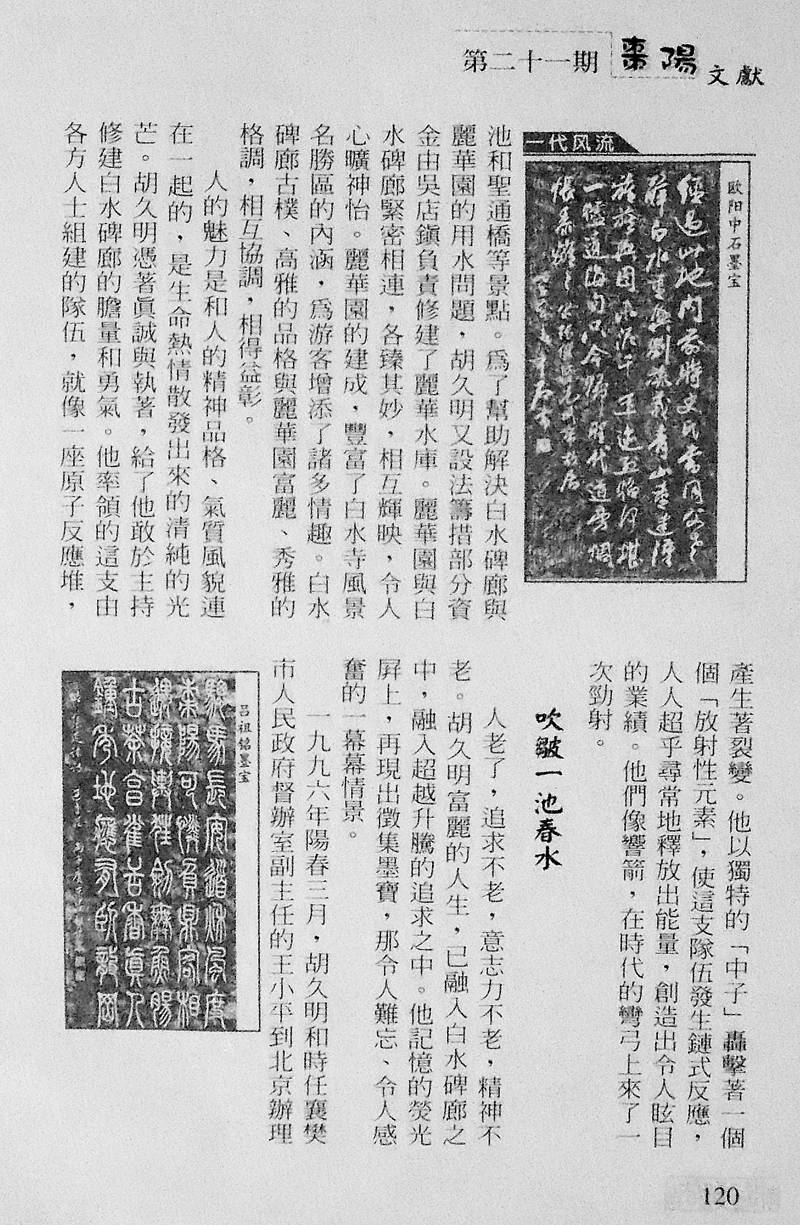 第二十一期
棗陽
文獻
一代风流
歐阳中石墨宝
池和聖通橋等景點。爲了幫助解決白水碑廊與
麗華園的用水問題，胡久明又設法籌措部分資
金由吳店鎮負責修建了麗華水庫。麗華園與白
水碑廊緊密相連，各臻其妙，相互輝映，令人
心曠神怡。麗華園的建成，豐富了白水寺風景
名勝區的內涵，爲游客增添了諸多情趣。白水
碑廊古樸、高雅的品格與麗華園富麗、秀雅的
格調，相互協調，相得益彰。
人的魅力是和人的精神品格、氣質風貌連
在一起的，是生命熱情散發出來的清純的光
芒。胡久明憑著眞誠與執著，給了他敢於主持
修建白水碑廊的膽量和勇氣。他率領的這支由
各方人士組建的隊伍，就像一座原子反應堆，
產生著裂變。他以獨特的「中子」轟擊著一個
個「放射性元素」，使這支隊伍發生鏈式反應，
人人超乎尋常地釋放出能量，創造出令人眩目
的業績。他們像響箭，在時代的彎弓上來了一
次勁射。
吹皺一池春水
人老了，追求不老，意志力不老，精神不
老。胡久明富麗的人生，已融入白水碑廊之
中，融入超越升騰的追求之中。他記憶的熒光
屏上，再現出徵集墨寶，那令人難忘、令人感
奮的一幕幕情景。
一九九六年陽春三月，胡久明和時任襄樊
市人民政府督辦室副主任的王小平到北京辦理
呂祖铭墨宝
120